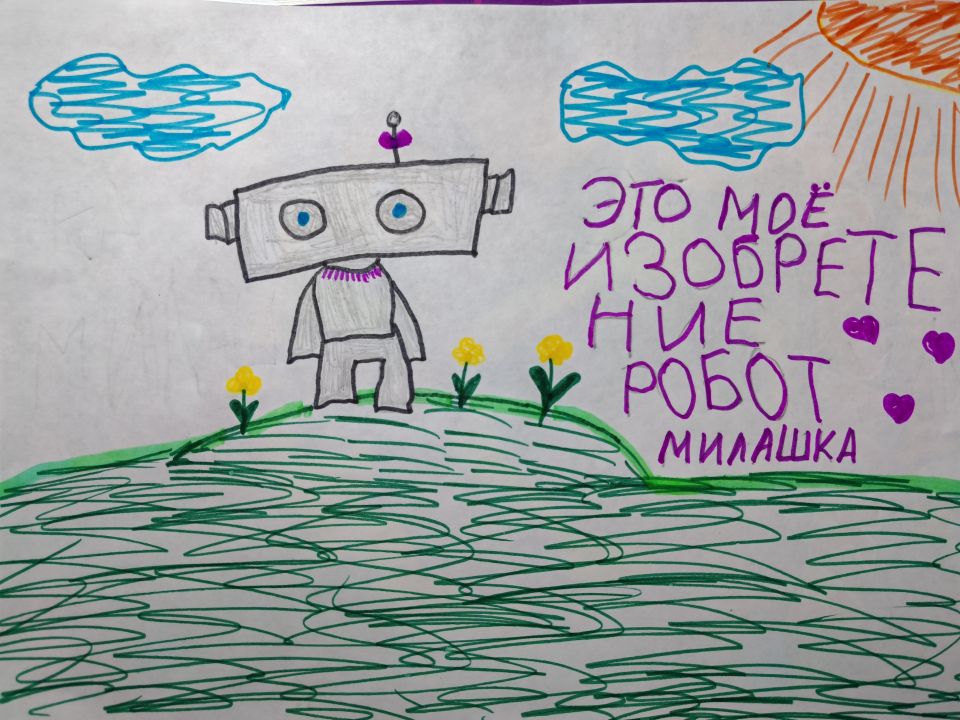 ЭТО МОЁ
ИЗОБРЕТЕ
НИЕ
РОБОТ
МИЛАШКА